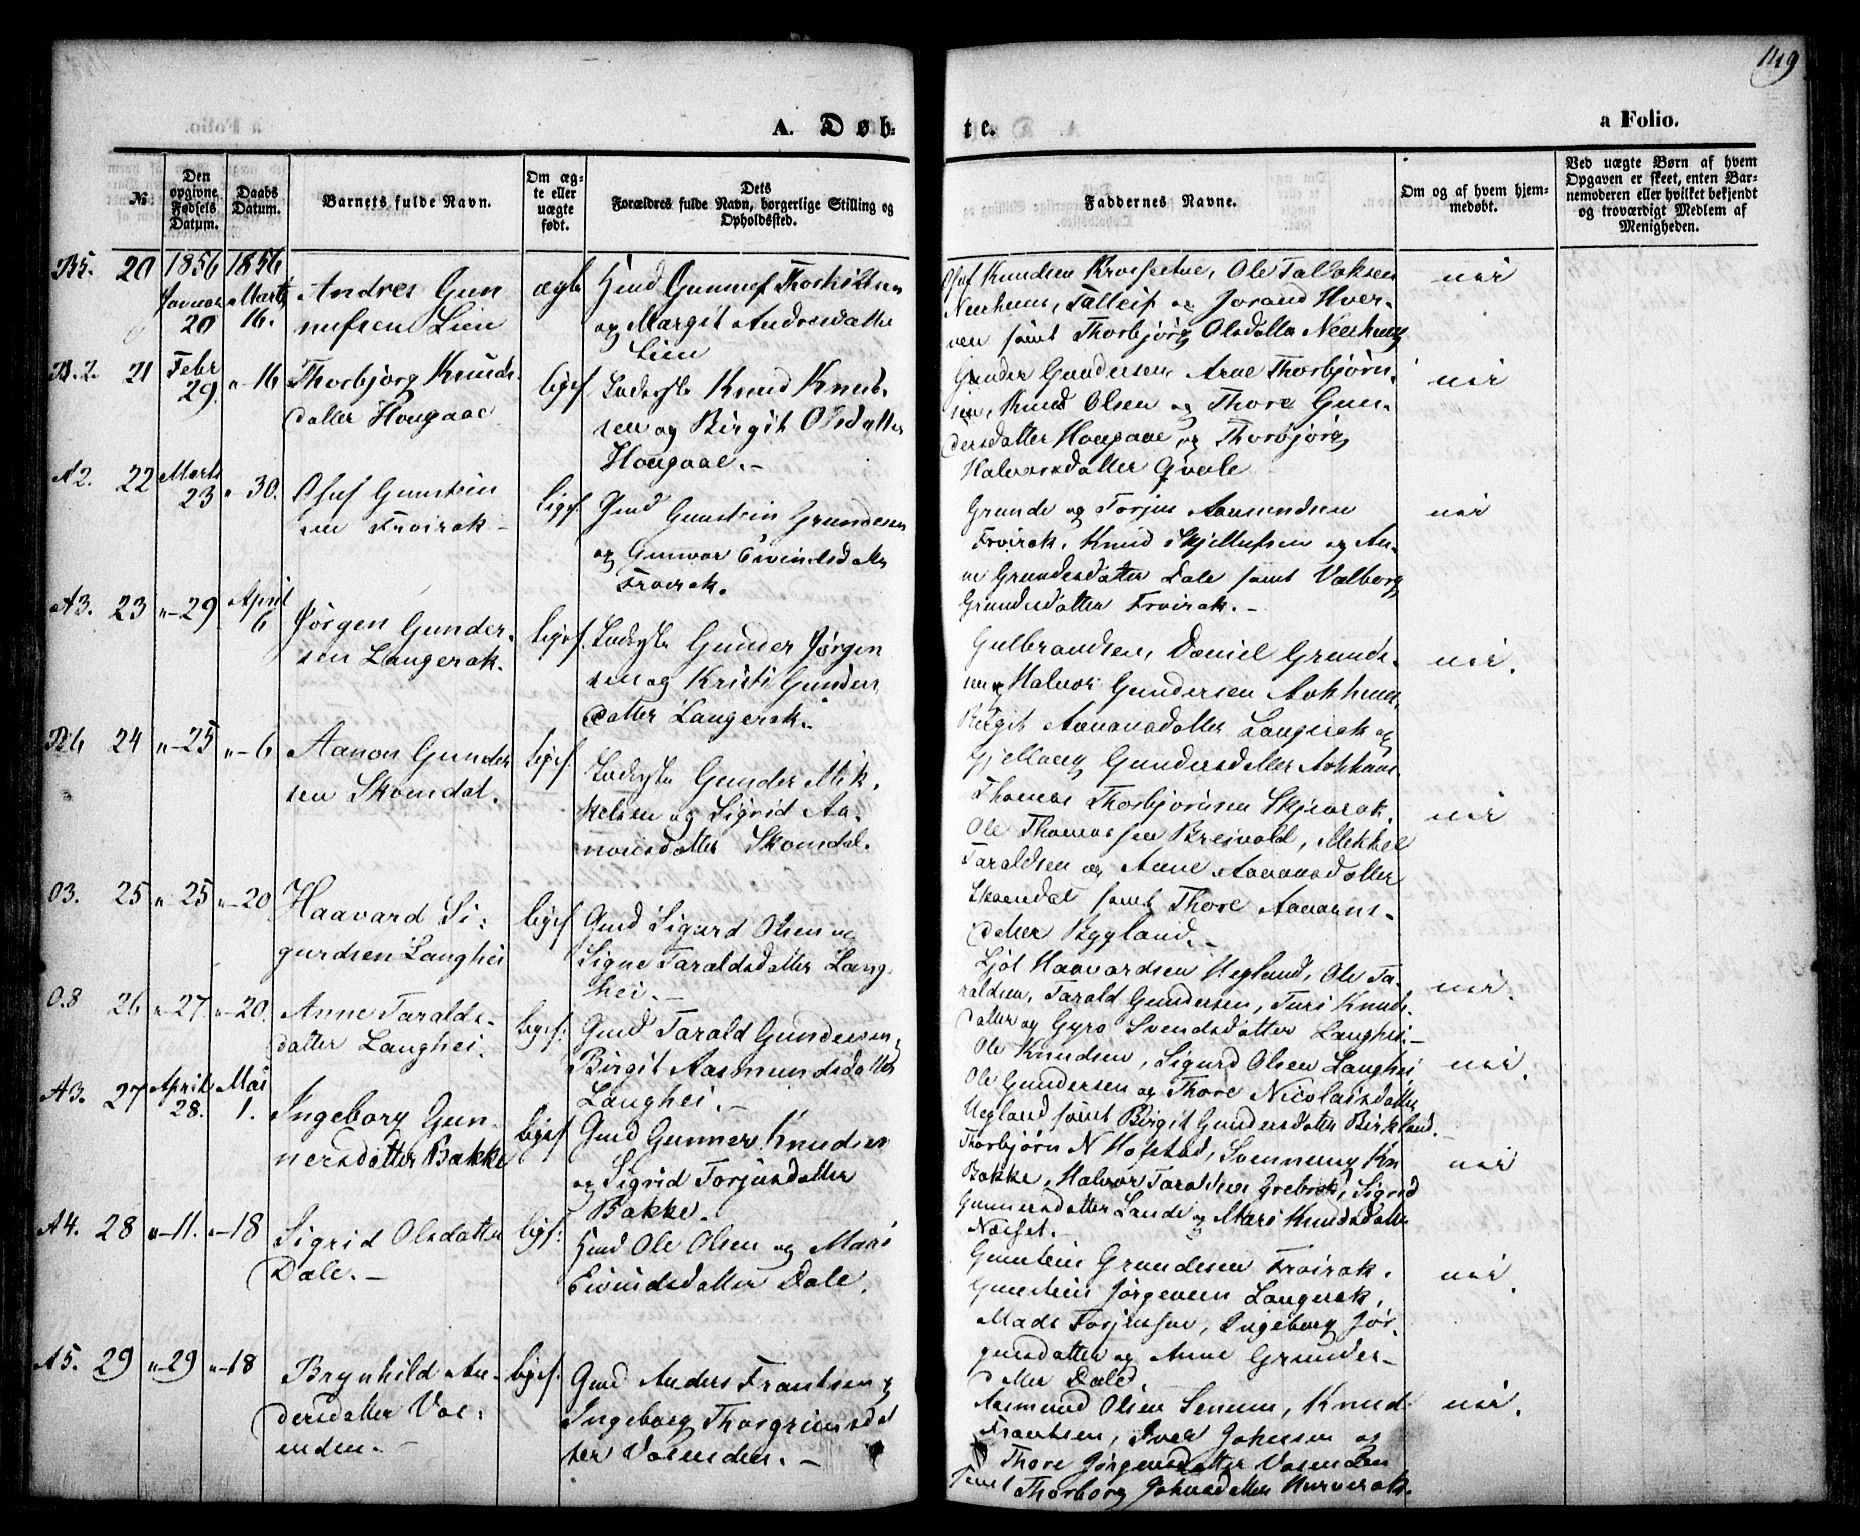 149
A. Døb-
te.
a Folio.
№
Den opgivne Fødsels Datum.
Daabs Datum.
Barnets fulde Navn.
Om æg-
te eller
uægte
født.
Dets
Forældres fulde Navn, borgerlige Stilling og
Opholdssted.
Faddernes Navne.
Om og af hvem hjem-
medøbt.
Ved uægte Børn af hvem
Opgaven er skeet, enten Bar-
nemoderen eller hvilket bekjendt
og troværdigt Medlem af
Menigheden.
B5. 20 1856 Januar 20 1856 Marts 16.
Andres Gun
nufsen Lien
ægte
Hmd Gunnuf Thorkildsen
og Margit Andresdatter
Lien
Olaf Knudsen Ole Tallaksen
Neerheim, Talleif og Jorand Hver-
ven samt Thorbjørg Olsdatter Neerheim
nei
B.2. 21 Febr 29. "-16
Thorbjørg Knuds-
datter Hougaae
ligel.
Ladeyte Knud Knud-
sen og Birgit Olsdatter
Hougaae.-
Gunder Gundersen, Aroe Thorbjørn-
sen, Knud Olsen og Thore Gun-
dersdatter Hougaae og Thorbjørg
Halvorsdatter Qvale
nei
A2. 22 Marts 23 "30.
Olaf Gunstein
sen Froirak -
ligel.
Gmd Gunstein Grundesen
og Gunvor Eivindsdatter
Froirak.
Grunde og Torjus Aamundsen
Froirak, Knud Kjellufsen og An-
ne Grundesdatter Dale samt Valborg
Grundesdatter Froirak.-
nei
A3. 23 "-29 April 6
Jørgen Gunder-
sen Langerak.
ligel.
Ladeyte Gunder Jørgen
sen og Kristi Gunders
datter Langerak.
Gulbrandsen, Daniel Grunde-
sen og Halvor Gundersen Aakhuus,
Birgit Aanonsdatter Langerak og
Gjelloug Gundersdatter Aakhuus
nei.
B6 24 "-25 "-6
Aanon Gunder
sen Skomdal.
ligel
Ladeyte Gunder Mik-
kelsen og Sigrid Aa-
nonsdatter Skomdal.
Thomas Thorbjørnsen Skjevrak,
Ole Thomassen Breivold, Mikkel
Taraldsen og Anne Aanonsdatter
Skomdal samt Thore Aanons-
datter Bygland.-
nei
O3. 25 "-25 "-20
Haavard Si-
gurdsen Langhei
ligel
Gmd Sigurd Olsen og
Signe Taraldsdatter Lang-
hei.-
Ljøl Haavardsen Uegland, Ole Ta-
raldsen, Tarald Gundersen, Turi Knuds-
datter og Gyro Svendsdatter Langhei.-
nei.
O.8 26 "-27 "-20.
Anne Taralds-
datter Langhei.
ligel:
Gmd Tarald Gundersen,
Birgit Aasmundsdatter
Langhei.-
Ole Knudsen, Sigurd Olsen Langhei
Ole Gundersen og Thore Nicolaisdatter
Uegland samt Birgit Gundersdatter Birkland.
nei.
A3. 27 April 28. Mai 1.
Ingeborg Gun-
nersdatter Bakke
ligel
Gmd Gunner Knudsen
og Sigrid Torjusdatter
Bakke.
Thorbjørn N Hofstad, Svennung Kn
Bakke, Halvor Taraldsen Grebrok, Sigrid
Gunnersdatter Lande og Mari Knudsdatter
Neset.-
nei
A4. 28 "-11. "-18
Sigrid Olsdatter
Dale.-
ligel:
Hmd Ole Olsen og Mari
Eivindsdatter Dale.
Gunstein Grundesen Froirak.
Gunstein Jørgensen Langerak,
Mads Torjussen, Ingeborg Jør-
gensdatter og Anne Grunder-
datter Dale.
nei.
A5. 29 "-29 "-18
Brynhild An-
dersdatter Vas-
enden.-
ligel.
Gmd Anders Frantsen og
Ingeborg Thorgrimsdat
ter Vasenden.-
Aasmund Olsen Senum, Knud
Frantsen, Iver Johnsen og
Thore Jørgensdatter Vasenden
samt Thorborg Johnsdatter Hurverak.
nei.